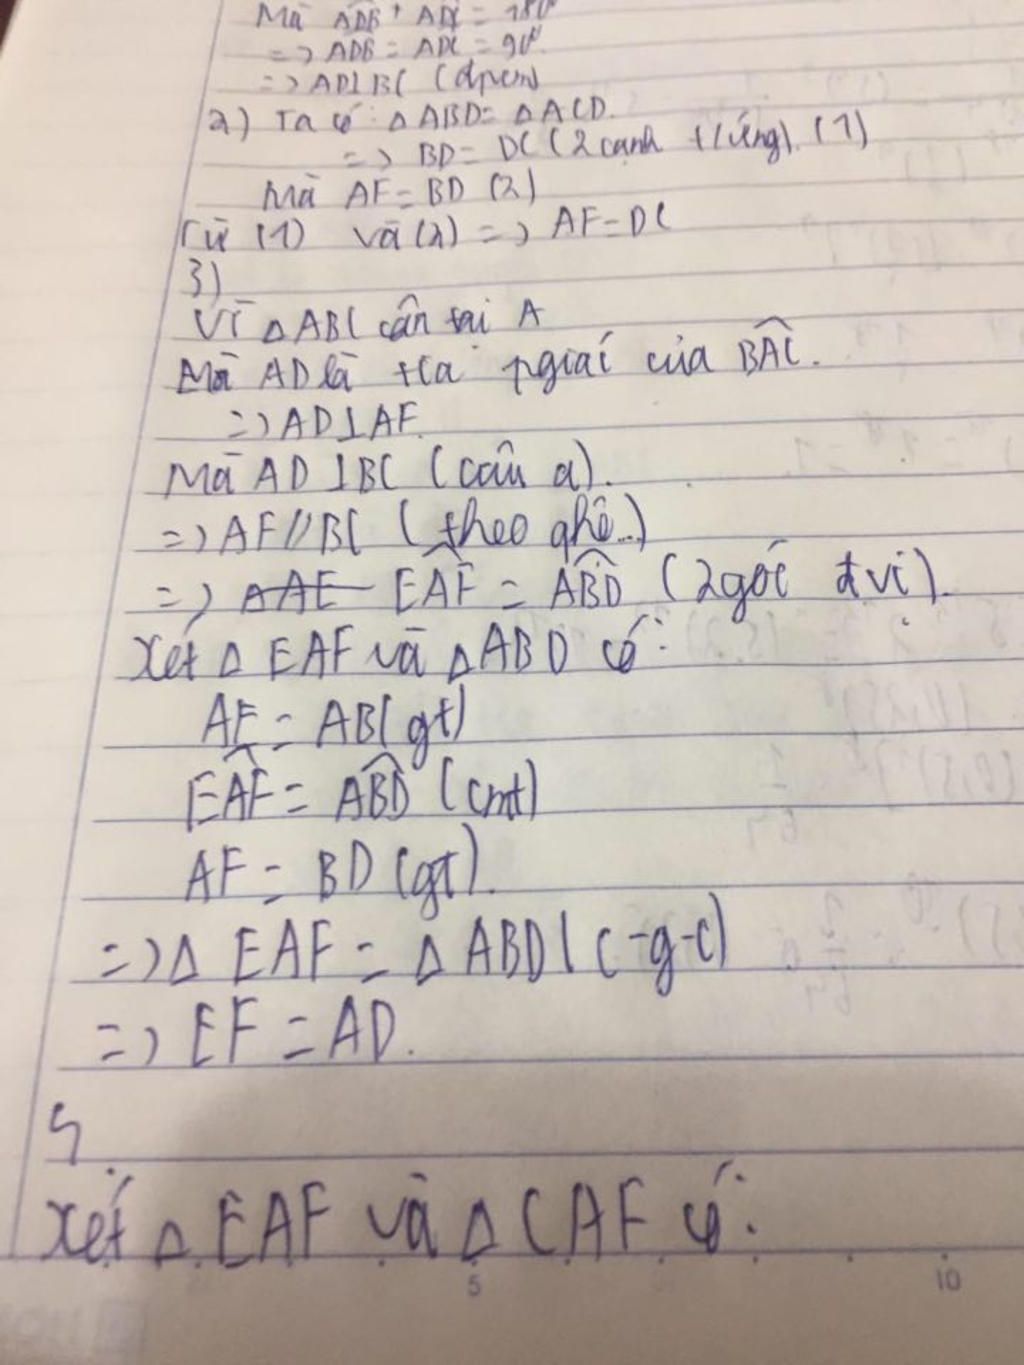 Mà ADB + ADC = 180°
=> ADB = ADC = 90°.
=> AD⊥BC (đpcm)
2) Ta có: △ABD = △ACD.
=> BD = DC (2 cạnh t/ứng). (1)
Mà AF = BD (2)
Từ (1) và (2) => AF = DC
3)
Vì △ABC cân tại A
Mà AD là tia pgiác của BAC.
=> AD⊥AF.
Mà AD⊥BC (câu a).
=> AF//BC (theo ghê..)
=> EAF = ABD (2 góc đvị).
Xét △EAF và △ABD có:
AF = AB (gt)
EAF = ABD (cmt)
AF = BD (gt).
=> △EAF = △ABD (c-g-c)
=> EF = AD.
Xét △EAF và △CAF có:
5 10